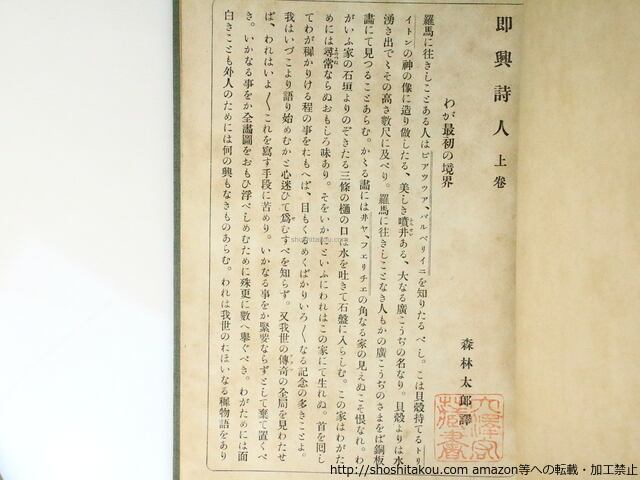 即興詩人 上卷
森林太郎譯
わが最初の境界
羅馬に往きしことある人はピアツツア、バルベリイニを知りたるべし。こは貝殼持てるトリ
イトンの神の像に造り做したる、美しき噴井ある、大なる廣こうぢの名なり。貝殼よりは水
湧き出でゝその高さ數尺に及べり。羅馬に往きしことなき人もかの廣こうぢのさまをば銅板
畫にて見つることあらむ。かゝる畫にはヰヤ、フェリチェの角なる家の見えぬこそ恨なれ。わ
がいふ家の石垣よりのぞきたる三條の樋の口は水を吐きて石盤に入らしむ。この家はわがた
めには尋常ならぬおもしろ味あり。そをいかにといふにわれはこの家にて生れぬ。首を囘し
てわが穉かりける程の事をおもへば、目もくるめくばかりいろ〱なる記念の多きことよ。
我はいづこより語り始めむかと心迷ひて爲むすべを知らず。又我世の傳奇の全局を見わたせ
ば、われはいよ〱これを寫す手段に苦めり。いかなる事をか緊要ならずとして棄て置くべ
き。いかなる事をか全畫圖をおもひ浮べしめむために殊更に數へ擧ぐべき。わがためには面
白きことも外人のためには何の興もなきものあらむ。われは我世のおほいなる穉物語をあり
shoshitakou.com
http://shoshitakou.com amazon等への転載・加工禁止